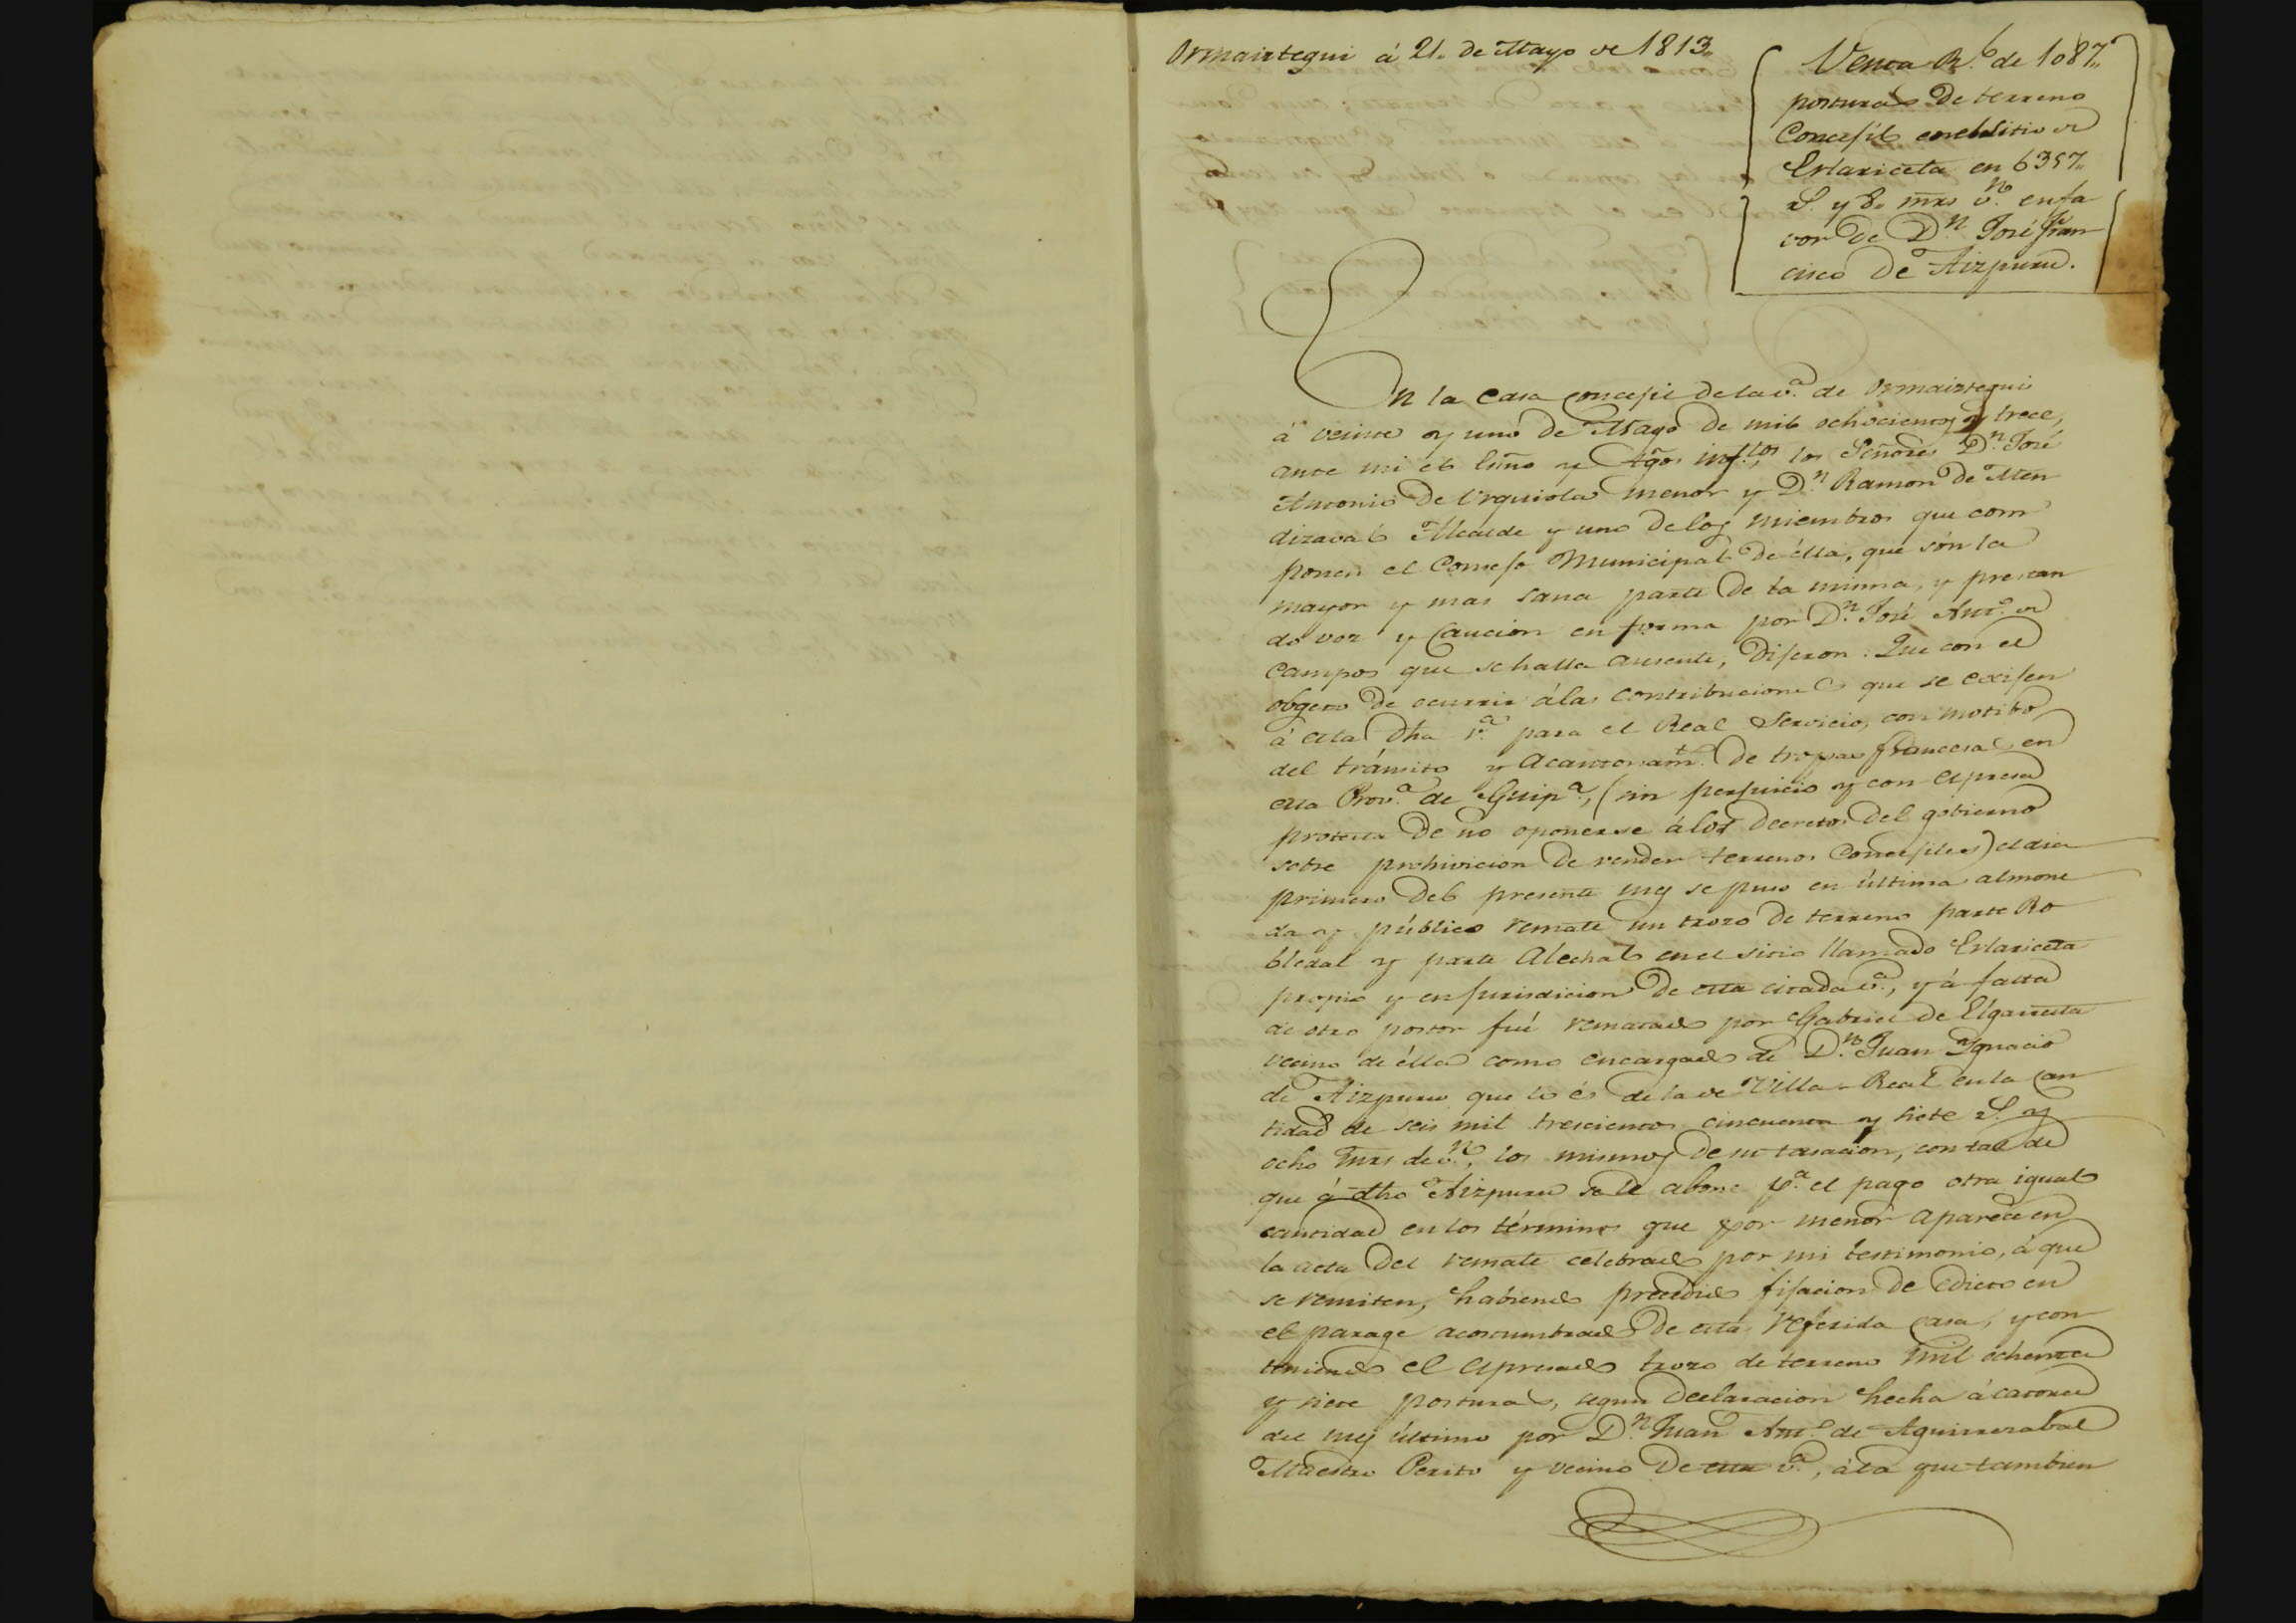 Ormaiztegui á 21. de Mayo de 1813.,
Venta Rl. de 1087.,
posturas de terreno
Concejil en el sitio de
Erlarizeta en 6357.,
rs. y 8. mrs vn. en fa-
vor de Dn. José Fran-
cisco de Aizpuru.
En la Casa Concejil de la va. de Ormaiztegui
á veinte y uno de Mayo de mil ochocientos y trece,
ante mi el Essno y tgos infltos, los Señores Dn. José
Antonio de Urquiola menor y Dn. Ramon de Men
dizaval Alcalde y uno de los miembros que com
ponen el Consejo Municipal de élla, que són la
mayor y mas sana parte de la misma, y prestan
do voz y Caucion en forma por Dn. José Anto. de
Campos que se halla ausente, Dijeron: Que con el
obgeto de ocurrir á las contribuciones que se exijen
á esta dha va. para el Real Servicio, con motibo
del tránsito y Acantonamto. de tropas francesas en
esta Prova. de Guipa., (sin perjuicio y con expresa
protesta de no oponerse á los decretos del gobierno
sobre prohivicion de vender terrenos Concejiles) el dia
primero del presente mes se puso en última almone
da y público remate un trozo de terreno parte Ro
bledal y parte Alechal en el sitio llamado Erlarizeta
propio y en jurisdicion de esta citada va., y á falta
de otro postor fué rematado por Gabriel de Elgarresta
vecino de élla como encargado de Dn. Juan Ygnacio
de Aizpuru que lo és de la de Villa-Real en la can
tidad de seis mil trescientos cincuenta y siete rs. y
ocho mrs de vn., los mismos de su tasacion, con tal de
que á dho Aizpuru se le abone pa. el pago otra igual
cantidad en los términos que por menor aparece en
la acta del remate celebrado por mi testimonio, á que
se remiten, habiendo precedido fijacion de Edicto en
el parage acostumbrado de esta referida casa, y con
teniendo el expresado trozo de terreno mil ochenta
y siete posturas, segun declaracion hecha á catorce
del mes último por Dn. Juan Anto. de Aguirrezabal
Maestro Perito y vecino de esta va., á la que tambien